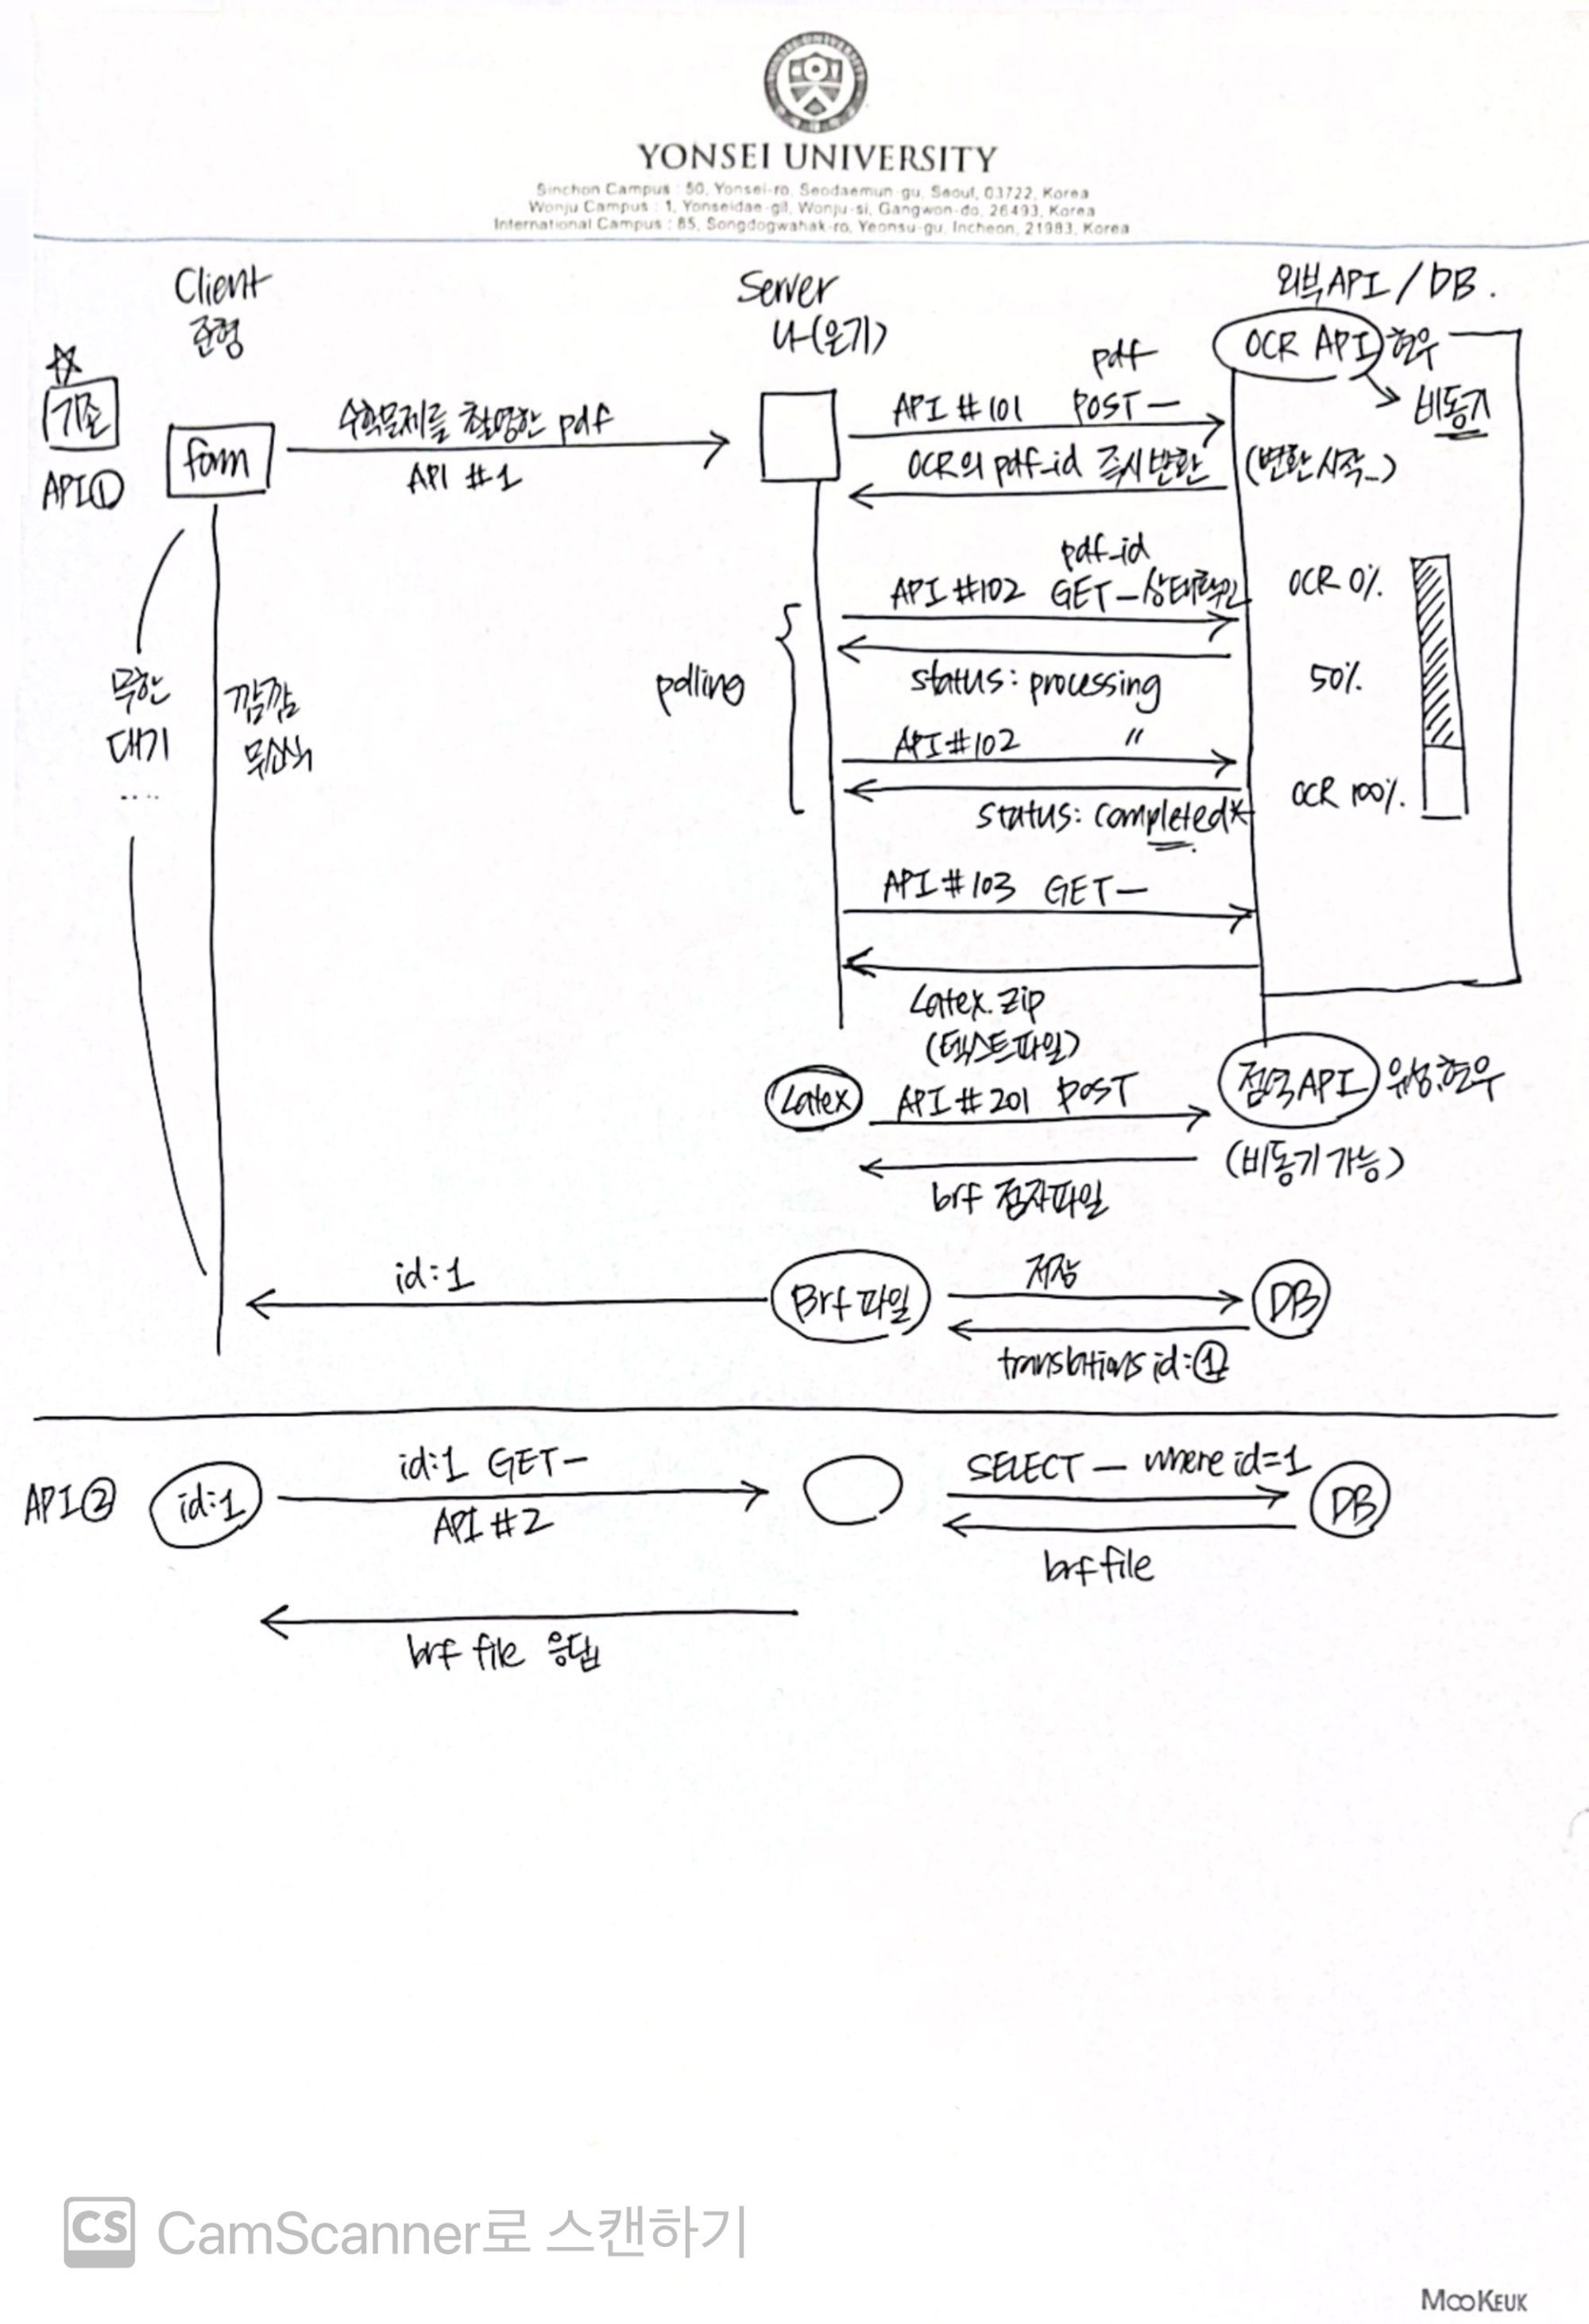 YONSEI UNIVERSITY
Sinchon Campus : 50, Yonsei-ro, Seodaemun-gu, Seoul, 03722, Korea
Wonju Campus : 1, Yonseidae-gil, Wonju-si, Gangwon-do, 26493, Korea
International Campus : 85, Songdogwahak-ro, Yeonsu-gu, Incheon, 21983, Korea
Client
준형
Server
나(은기)
외부API / DB.
OCR API 현우
비동기
☆
기존
API①
form
수학문제를 촬영한 pdf
API #1
pdf
API #101 POST —
OCR의 pdf_id 즉시 반환
(변환 시작..)
pdf_id
API #102 GET — 상태확인
OCR 0%.
polling
status: processing
50%.
무한
대기
....
깜깜
무소식
API #102 〃
status: completed*
OCR 100%.
API #103 GET —
Latex.zip
(텍스트파일)
Latex
API #201 POST
점역API
현우
(비동기 가능)
brf 점자파일
id:1
Brf 파일
저장
DB
translations id:①
API②
id:1
id:1 GET —
API #2
SELECT — where id=1
DB
brf file
brf file 응답
CS CamScanner로 스캔하기
MOOKEUK